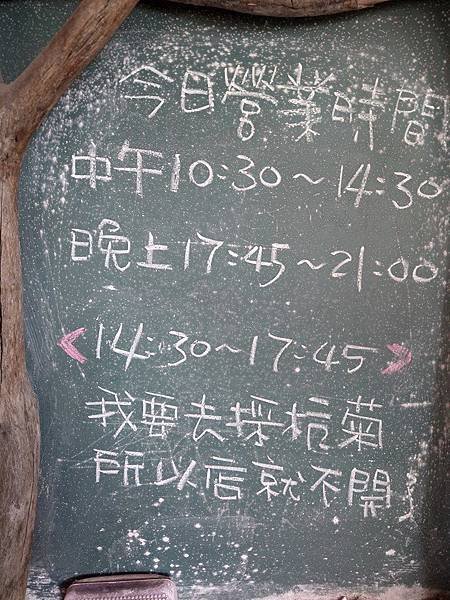 今日營業時間
中午10:30～14:30
晚上17:45～21:00
《14:30～17:45》
我要去採杭菊
所以店就不開